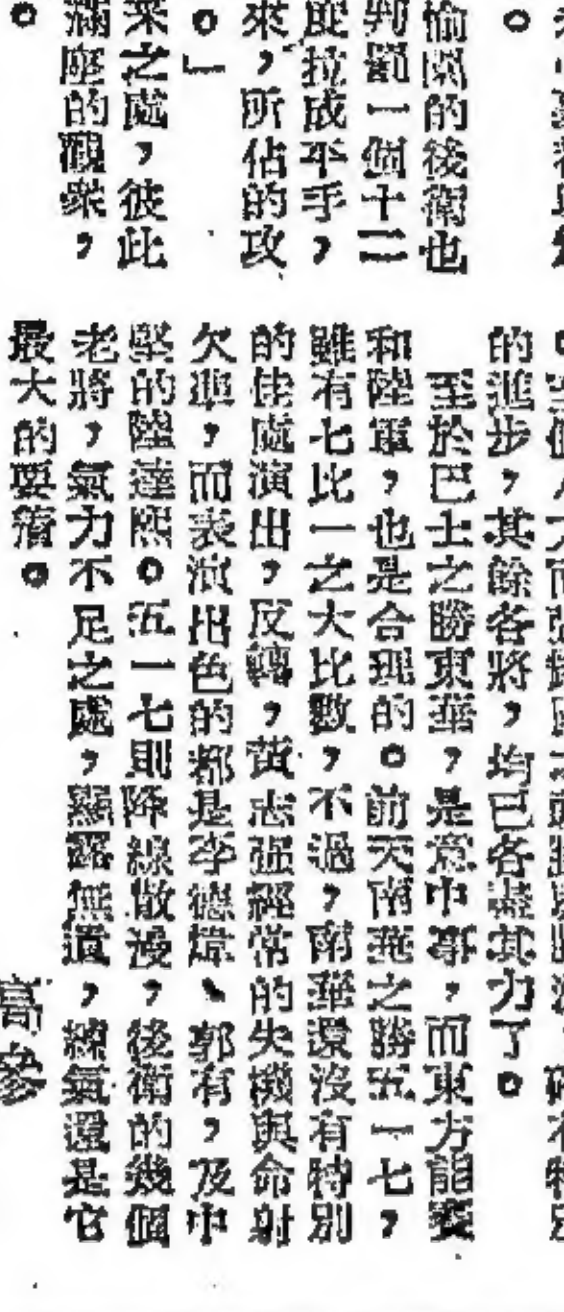 愉閒的後衛也
判罰一個十二
度拉成平手，
來，所佔的攻
。」
采之處，彼此
滿座的觀衆，
。
的進步，其餘各將，均已各盡其力了。
至於巴士之勝東華，是意中事，而東方能賽
和陸軍，也是合理的。前天南華之勝五一七，
雖有七比一之大比數，不過，南華還沒有特別
的佳處演出，反轉，黃志强經常的失機與命射
欠準，而表演出色的都是李德煒、郭有，及中
堅的陸達熙。五一七則陣線散漫，後衛的幾個
老將，氣力不足之處，顯露無遺，練氣還是它
最大的要着。
高參